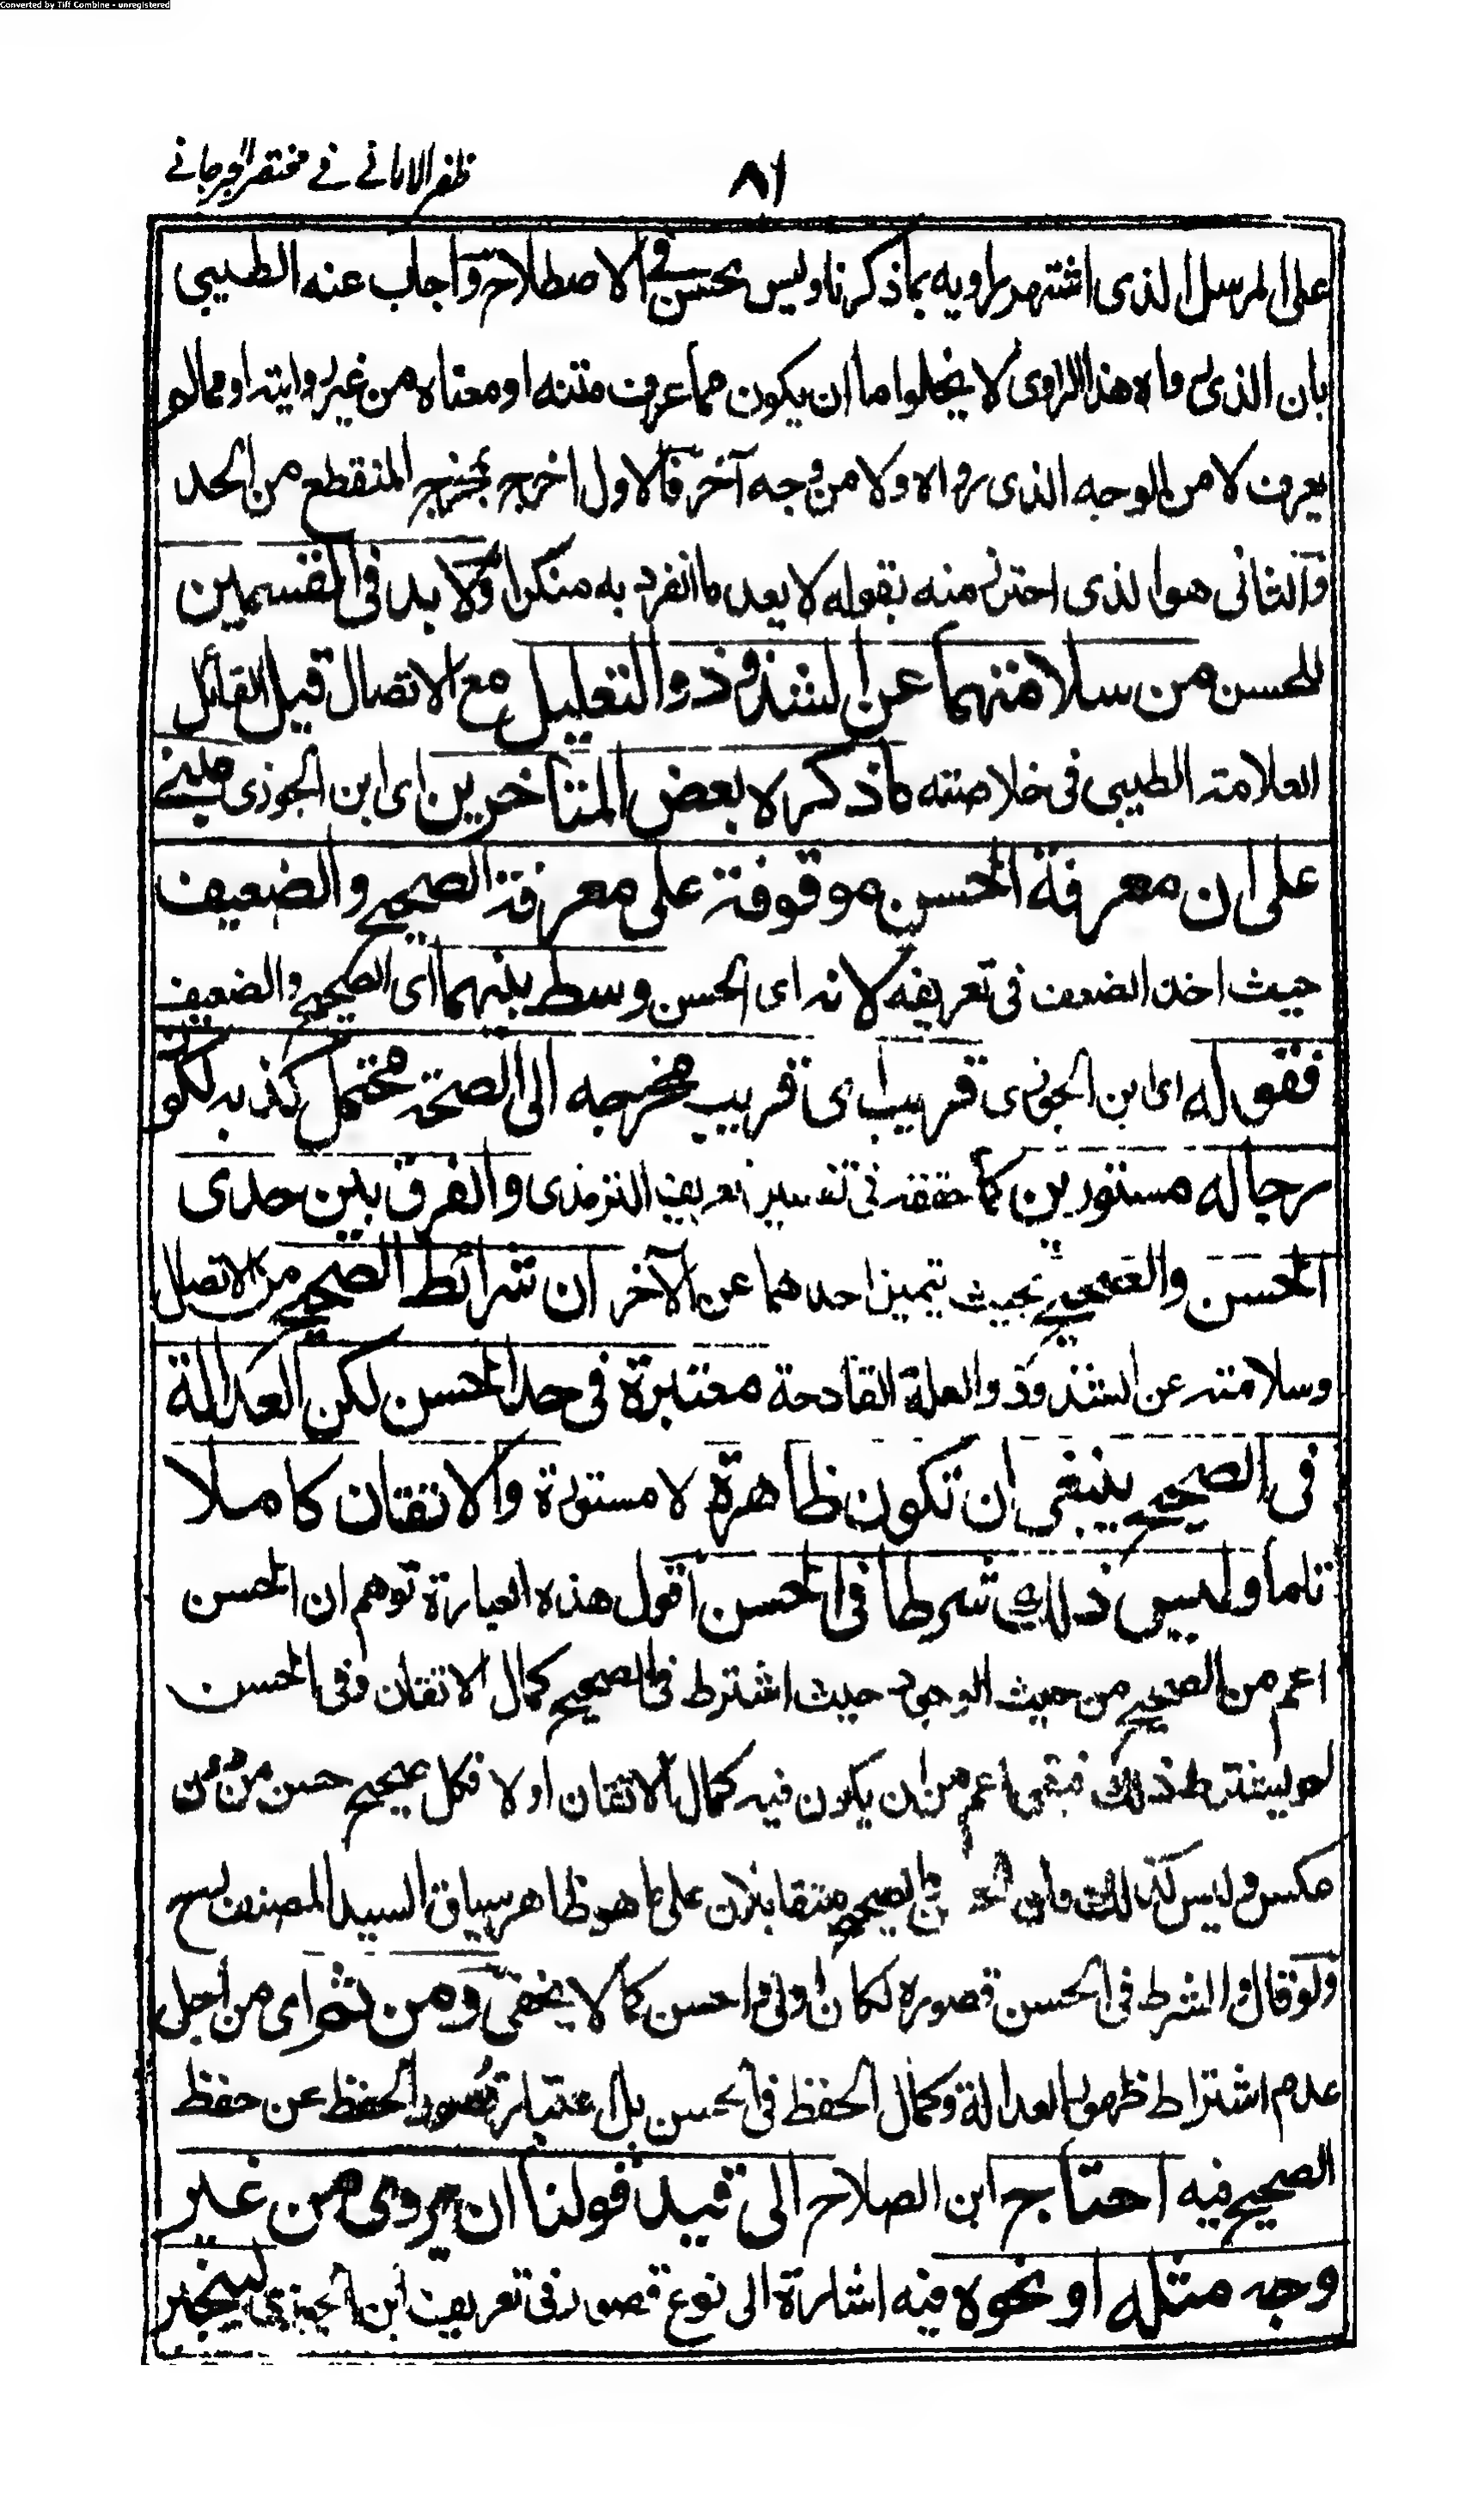 Converted by Tiff Combine - unregistered
ظفر الامانی فی مختصر الجرجانی
٨١
على المرسل الذى اشتهر راويه بما ذكرنا وليس بحسن فى الاصطلاح واجاب عنه الطيبى
بان الذى رواه هذا الراوى لا يخلوا ما ان يكون مما عرف متنه او معناه من غير روايته او مما لم
يعرف لا من الوجه الذى رواه ولا من وجه آخر فالاول اخرج بخرجه المنقطع من الحد
والثانى هو الذى احترز منه بقوله لا يعد ما انفرد به منكرا ولا بد فى القسمين
للحسن من سلامتهما عن الشذوذ والتعليل مع الاتصال قيل القائل
العلامة الطيبى فى خلاصته ما ذكره بعض المتأخرين اى ابن الجوزى مبنى
على ان معرفة الحسن موقوفة على معرفة الصحيح والضعيف
حيث اخذ الضعف فى تعريفه لانه اى الحسن وسط بينهما اى الصحيح والضعيف
فقوله اى ابن الجوزى قريب اى قريب مخرجه الى الصحة محتمل كذبه لكون
رجاله مستورين كما حققه فى تفسير تعريف الترمذى والفرق بين حدى
الحسن والصحيح بحيث يتميز احدهما عن الآخر ان شرائط الصحيح من الاتصال
وسلامته عن الشذوذ والعلة القادحة معتبرة فى حد الحسن لكن العدالة
فى الصحيح ينبغى ان تكون ظاهرة لا مستورة والاتقان كاملا
تاما وليس ذلك شرطا فى الحسن اقول هذه العبارة توهم ان الحسن
اعم من الصحيح من حيث الوجود حيث اشترط فى الصحيح كمال الاتقان وفى الحسن
لم يشترط ذلك فبقى اعم من ان يكون فيه كمال الاتقان او لا فكل صحيح حسن من دون
عكس وليس كذلك فان الحسن والصحيح متقابلان على ما هو ظاهر سياق السيد المصنف رح
ولو قال والشرط فى الحسن قصوره لكان اولى واحسن كما لا يخفى ومن ثم اى من اجل
عدم اشتراط ظهور العدالة وكمال الحفظ فى الحسن بل اعتبار قصور الحفظ عن حفظ
الصحيح فيه احتاج ابن الصلاح الى قيد قولنا ان يروى من غير
وجه مثله او نحوه فيه اشارة الى نوع قصور فى تعريف ابن الجوزى لينجبر